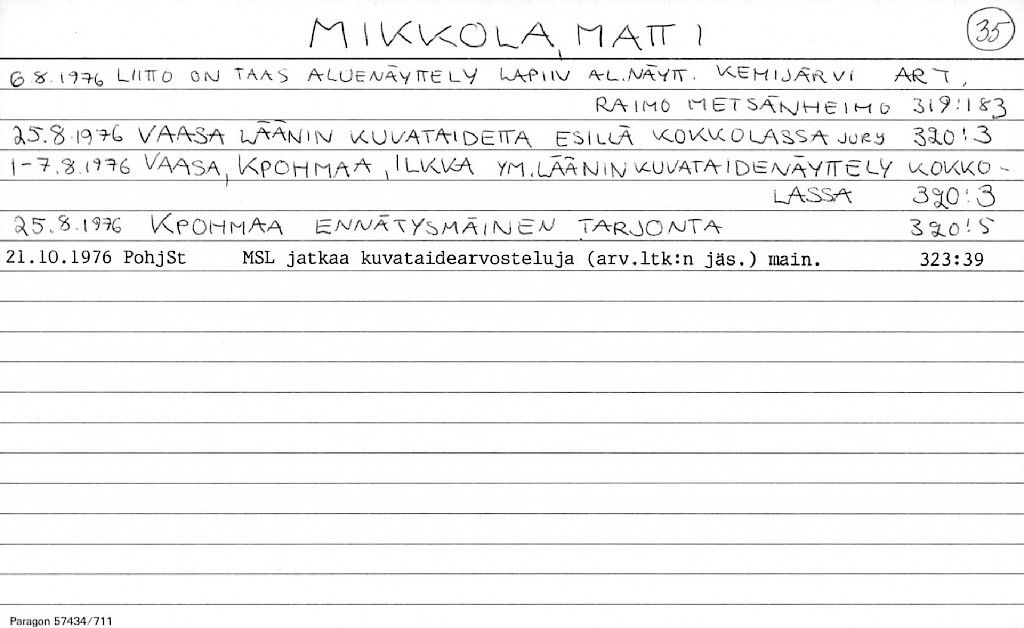 MIKKOLA, MATTI 35
6.8.1976 LIITTO ON TAAS ALUENÄYTTELY LAPIIN AL.NÄYTT. KEMIJÄRVI ART,
RAIMO METSÄNHEIMO 319:183
25.8.1976 VAASA LÄÄNIN KUVATAIDETTA ESILLÄ KOKKOLASSA JURY 320:3
1-7.8.1976 VAASA, KPOHMAA, ILKKA YM. LÄÄNIN KUVATAIDENÄYTTELY KOKKO-
LASSA 320:3
25.8.1976 KPOHMAA ENNÄTYSMÄINEN TARJONTA 320:5
21.10.1976 PohjSt MSL jatkaa kuvataidearvosteluja (arv.ltk:n jäs.) main. 323:39
Paragon 57434/711